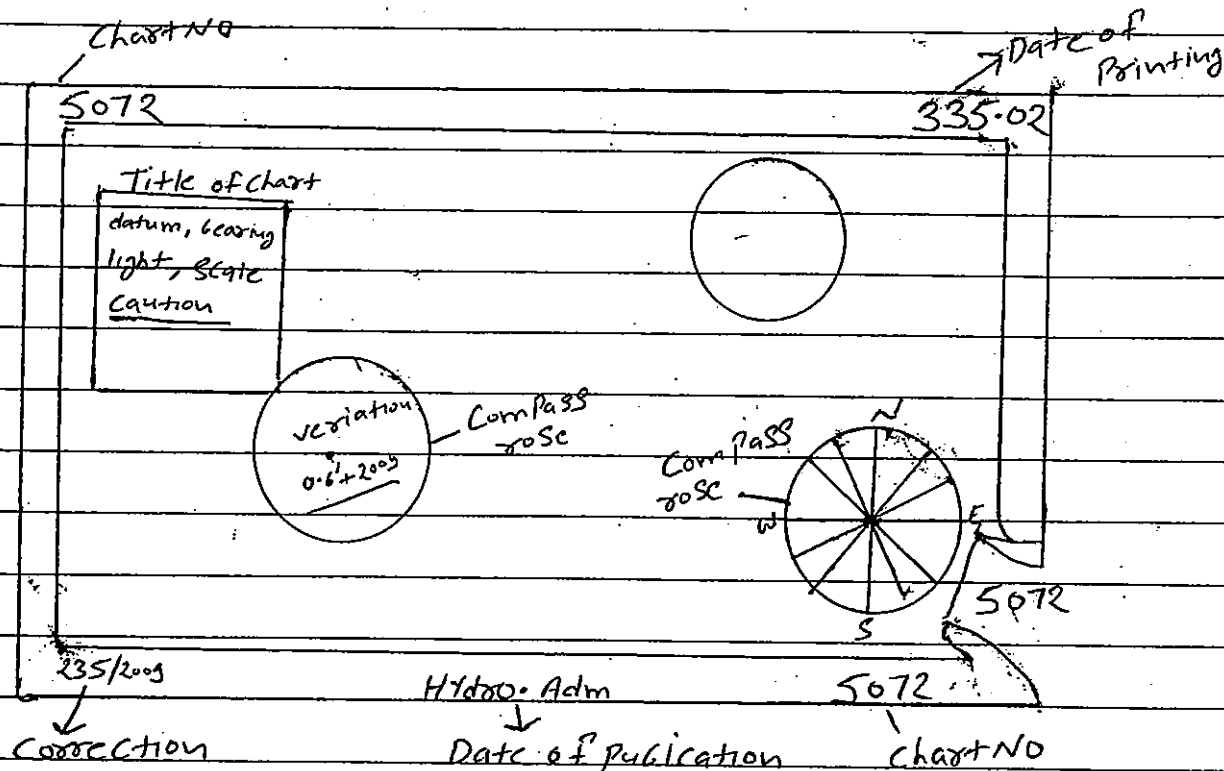 Chart NO
Date of
Printing
5072
335.02
Title of Chart
datum, bearing
light, Scale
Caution
veriation
0.6'+2009
Compass
rose
Compass
rose
N
W
E
S
5072
235/2009
Hydro. Adm
5072
Correction
Date of publication
Chart NO